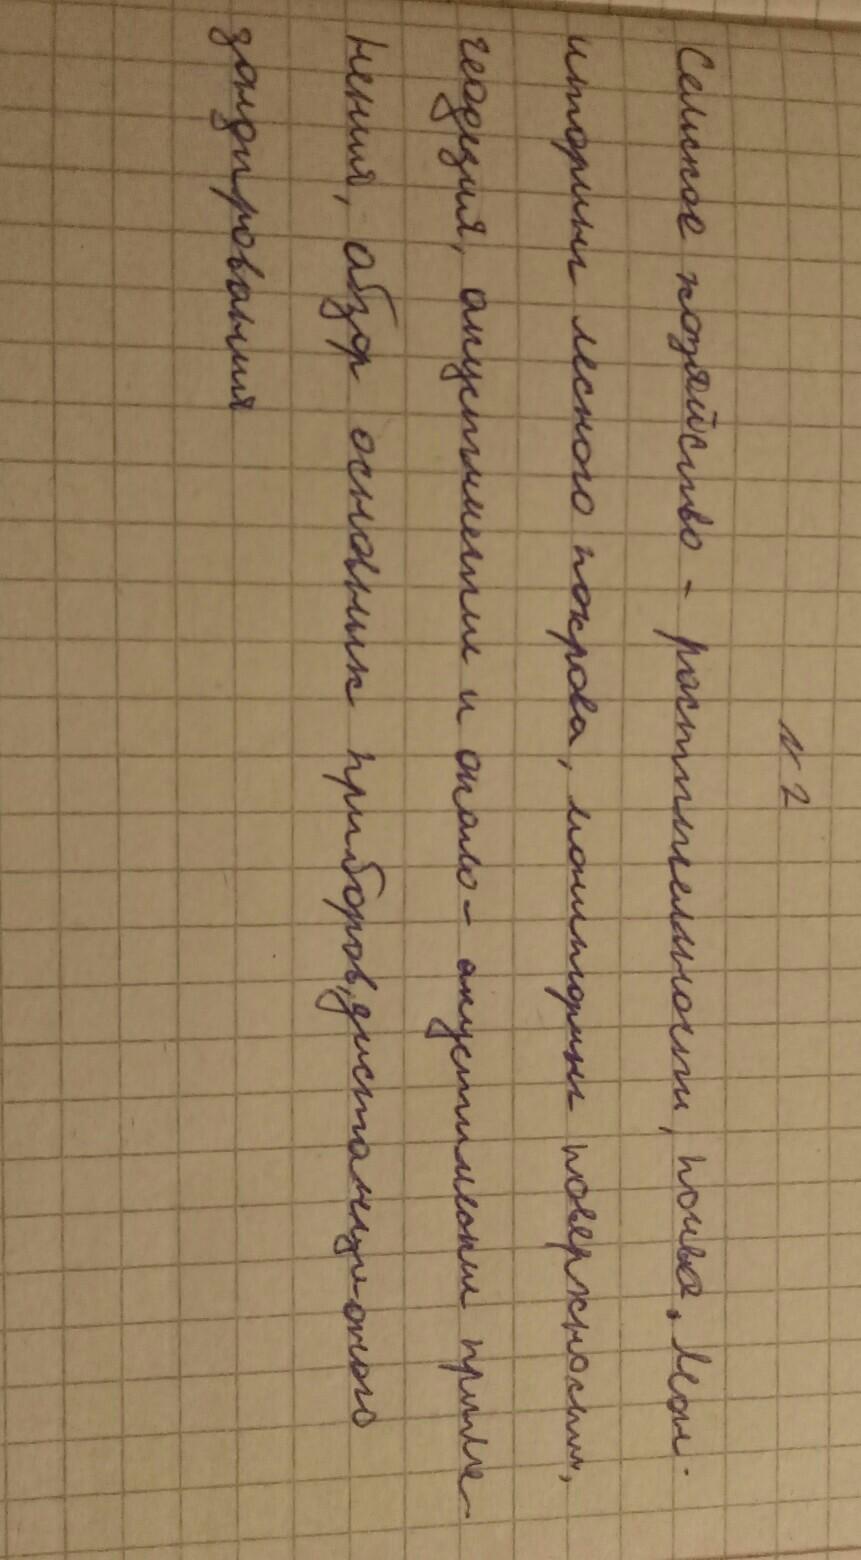 № 2
Сельское хозяйство - растительности, почва. Мон-
иторинг лесного покрова, мониторинг поверхности,
геодезия, акустические и около - акустические приме-
нения, обзор основных приборов, дистанционого
зондирования